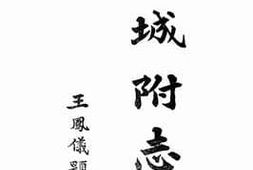 城附志
王鳳儀題